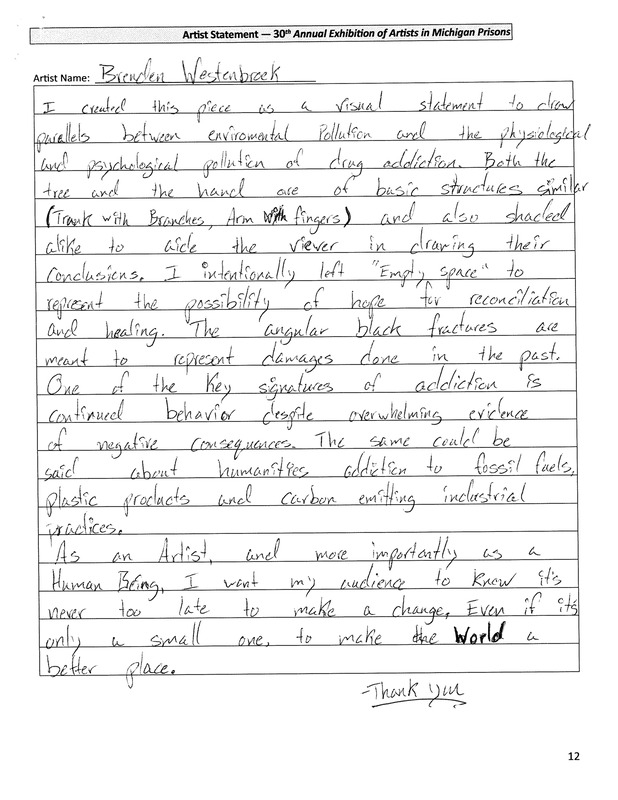 Artist Statement — 30th Annual Exhibition of Artists in Michigan Prisons
Artist Name: Brenden Westenbroek
I created this piece as a visual statement to draw
parallels between enviromental Pollution and the physiological
and psychological pollution of drug addiction. Both the
tree and the hand are of basic structures similar
(Trunk with Branches, Arm with fingers) and also shaded
alike to aide the viewer in drawing their
Conclusions. I intentionally left "Empty space" to
represent the possibility of hope for reconciliation
and healing. The angular black fractures are
meant to represent damages done in the past.
One of the Key signatures of addiction is
continued behavior despite overwhelming evidence
of negative consequences. The same could be
said about humanities addiction to fossil fuels,
plastic products and carbon emitting industrial
practices.
As an Artist, and more importantly as a
Human Being, I want my audience to know it's
never too late to make a change, Even if its
only a small one, to make the World a
better place.
-Thank you
12